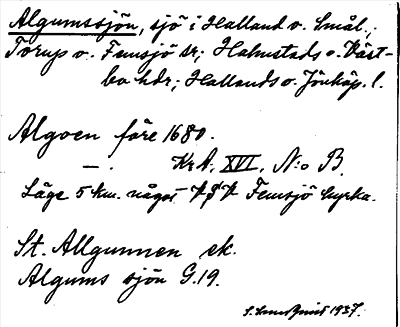 Algumssjön, sjö i Halland o. Smål.;
Torup o. Femsjö sr; Halmstads o. Väst-
bo hdr; Hallands o. Jönköp. l.
Algoen före 1680.
— . KrA. XVI, N:o B.
Läge 5 km. något VSV Femsjö kyrka.
St. Allgunnen ek.
Algums sjön G.19.
1937.